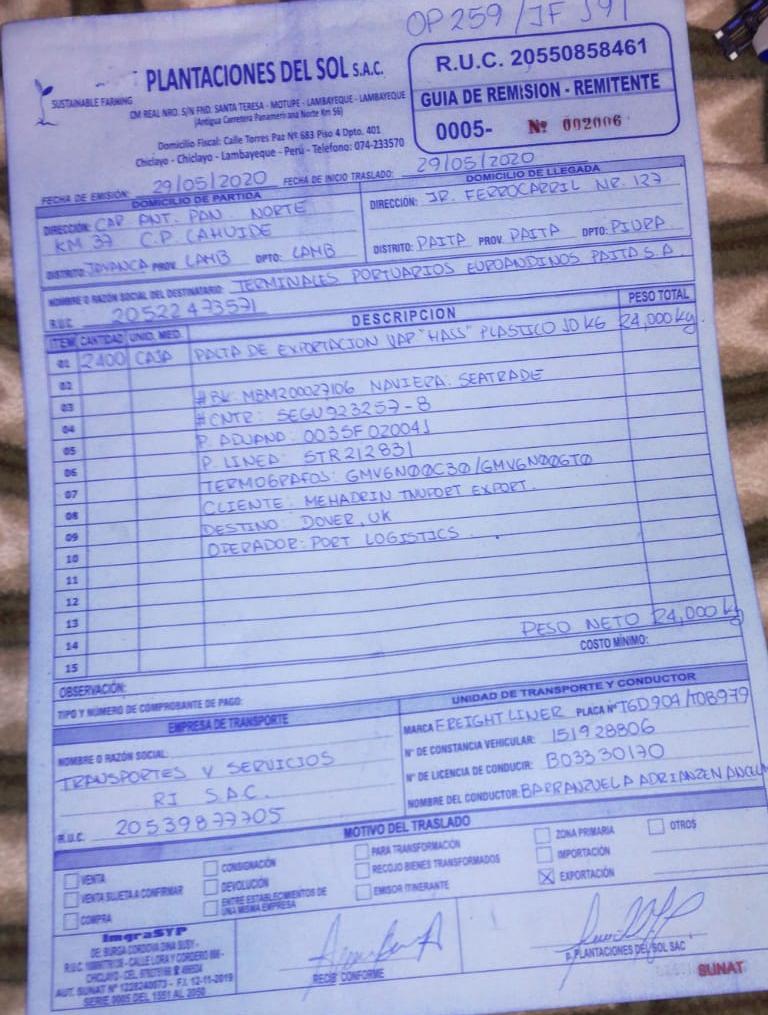 OP 259 / JF 191
PLANTACIONES DEL SOL S.A.C.
SUSTAINABLE FARMING
CM REAL NRO. S/N FND. SANTA TERESA - MOTUPE - LAMBAYEQUE - LAMBAYEQUE
(Antigua Carretera Panamericana Norte Km 56)
Domicilio Fiscal: Calle Torres Paz Nº 683 Piso 4 Dpto. 401
Chiclayo - Chiclayo - Lambayeque - Perú - Telefono: 074-233570
R.U.C. 20550858461
GUIA DE REMISION - REMITENTE
0005- Nº 002006
FECHA DE EMISIÓN: 29/05/2020 FECHA DE INICIO TRASLADO: 29/05/2020
DOMICILIO DE PARTIDA
DIRECCIÓN: CAR ANT. PAN. NORTE
KM 37 C.P. CAHUIDE
DISTRITO: JAYANCA PROV. LAMB DPTO: LAMB
DOMICILIO DE LLEGADA
DIRECCIÓN: JR. FERROCARRIL NR. 127
DISTRITO: PAITA PROV. PAITA DPTO: PIURA
NOMBRE O RAZÓN SOCIAL DEL DESTINATARIO: TERMINALES PORTUARIOS EUROANDINOS PAITA S.A.
R.U.C. 20522473571
ITEM CANTIDAD UNID. MED. DESCRIPCION PESO TOTAL
01 2400 CAJA PALTA DE EXPORTACION VAR "HASS" PLASTICO 10 KG 24,000 kg
02
03 # BK: MBM200027106 NAVIERA: SEATRADE
04 # CNTR: SEGU923257-8
05 P. ADUANA: 0035F020041
06 P. LINEA: STR212831
07 TERMOGRAFOS: GMV6N00C30/GMV6N00GT0
08 CLIENTE: MEHADRIN TNUPORT EXPORT.
09 DESTINO: DOVER, UK
10 OPERADOR: PORT LOGISTICS.
11
12
13
14 PESO NETO 24,000 kg
15 COSTO MÍNIMO:
OBSERVACIÓN:
TIPO Y NÚMERO DE COMPROBANTE DE PAGO:
EMPRESA DE TRANSPORTE
NOMBRE O RAZÓN SOCIAL:
TRANSPORTES Y SERVICIOS
RI S.A.C.
R.U.C. 20539877705
UNIDAD DE TRANSPORTE Y CONDUCTOR
MARCA FREIGHTLINER PLACA Nº TGD904/TOB979
Nº DE CONSTANCIA VEHICULAR: 151928806
Nº DE LICENCIA DE CONDUCIR: B03330170
NOMBRE DEL CONDUCTOR: BARRANZUELA ADRIANZEN
MOTIVO DEL TRASLADO
VENTA
VENTA SUJETA A CONFIRMAR
COMPRA
CONSIGNACIÓN
DEVOLUCIÓN
ENTRE ESTABLECIMIENTOS DE
UNA MISMA EMPRESA
PARA TRANSFORMACIÓN
RECOJO BIENES TRANSFORMADOS
EMISOR ITINERANTE
ZONA PRIMARIA
IMPORTACIÓN
X EXPORTACIÓN
OTROS
ImgraSYP
DE: BURGA CORDOVA DINA SUSY -
CALLE LORA Y CORDERO
AUT. SUNAT Nº 1228240073 - F.I. 12-11-2019
SERIE 0005 DEL 1551 AL 2050
RECIBI CONFORME
P. PLANTACIONES DEL SOL SAC
SUNAT